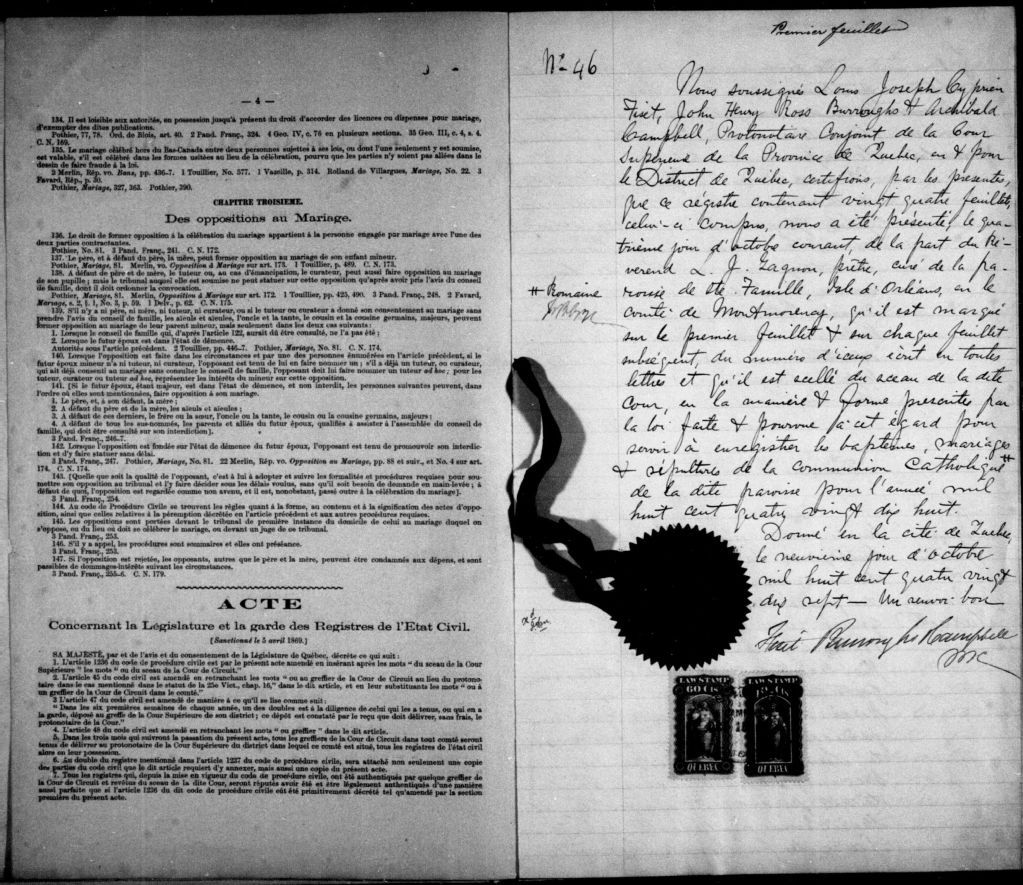 — 4 —
134. Il est loisible aux autorités, en possession jusqu'à présent du droit d'accorder des licences ou dispenses pour mariage,
d'exempter des dites publications.
Pothier, 77, 78. Ord. de Blois, art. 40. 2 Pand. Franç., 324. 4 Geo. IV, c. 76 en plusieurs sections. 35 Geo. III, c. 4, s. 4.
C. N. 169.
135. Le mariage célébré hors du Bas-Canada entre deux personnes sujettes à ses lois, ou dont l'une seulement y est soumise,
est valable, s'il est célébré dans les formes usitées au lieu de la célébration, pourvu que les parties n'y soient pas allées dans le
dessin de faire fraude à la loi.
2 Merlin, Rép. vo. Bans, pp. 436-7. 1 Touillier, No. 577. 1 Vazeille, p. 314. Rolland de Villargues, Mariage, No. 22. 3
Favard, Rép., p. 30.
Pothier, Mariage, 327, 363. Pothier, 390.
CHAPITRE TROISIEME.
Des oppositions au Mariage.
136. Le droit de former opposition à la célébration du mariage appartient à la personne engagée par mariage avec l'une des
deux parties contractantes.
Pothier, No. 81. 3 Pand. Franç., 241. C. N. 172.
137. Le père, et à défaut du père, la mère, peut former opposition au mariage de son enfant mineur.
Pothier, Mariage, 81. Merlin, vo. Opposition à Mariage sur art. 173. 1 Touillier, p. 489. C. N. 173.
138. A défaut de père et de mère, le tuteur ou, au cas d'émancipation, le curateur, peut aussi faire opposition au mariage
de son pupille; mais le tribunal auquel elle est soumise ne peut statuer sur cette opposition qu'après avoir pris l'avis du conseil
de famille, dont il doit ordonner la convocation.
Pothier, Mariage, 81. Merlin, Opposition à Mariage sur art. 172. 1 Touillier, pp. 425, 490. 3 Pand. Franç., 248. 2 Favard,
Mariage, s. 2, § 1, No. 3, p. 59. 1 Delv., p. 62. C. N. 175.
139. S'il n'y a ni père, ni mère, ni tuteur, ni curateur, ou si le tuteur ou curateur a donné son consentement au mariage sans
prendre l'avis du conseil de famille, les aïeuls et aïeules, l'oncle et la tante, le cousin et la cousine germains, majeurs, peuvent
former opposition au mariage de leur parent mineur, mais seulement dans les deux cas suivants:
1. Lorsque le conseil de famille qui, d'après l'article 122, aurait dû être consulté, ne l'a pas été;
2. Lorsque le futur époux est dans l'état de démence.
Autorités sous l'article précédent. 2 Touillier, pp. 446-7. Pothier, Mariage, No. 81. C. N. 174.
140. Lorsque l'opposition est faite dans les circonstances et par une des personnes énumérées en l'article précédent, si le
futur époux mineur n'a ni tuteur, ni curateur, l'opposant est tenu de lui en faire nommer un; s'il a déjà un tuteur, ou curateur,
qui ait déjà consenti au mariage sans consulter le conseil de famille, l'opposant doit lui faire nommer un tuteur ad hoc; pour les
tuteur, curateur ou tuteur ad hoc, représenter les intérêts du mineur sur cette opposition.
141. [Si le futur époux, étant majeur, est dans l'état de démence, et non interdit, les personnes suivantes peuvent, dans
l'ordre où elles sont mentionnées, faire opposition à son mariage.
1. Le père, et, à son défaut, la mère;
2. A défaut du père et de la mère, les aïeuls et aïeules;
3. A défaut de ces derniers, le frère ou la sœur, l'oncle ou la tante, le cousin ou la cousine germains, majeurs;
4. A défaut de tous les sus-nommés, les parents et alliés du futur époux, qualifiés à assister à l'assemblée du conseil de
famille, qui doit être consulté sur son interdiction].
3 Pand. Franç., 246-7.
142. Lorsque l'opposition est fondée sur l'état de démence du futur époux, l'opposant est tenu de promouvoir son interdic-
tion et d'y faire statuer sans délai.
3 Pand. Franç., 247. Pothier, Mariage, No. 81. 22 Merlin, Rép. vo. Opposition au Mariage, pp. 88 et suiv., et No. 4 sur art.
174. C. N. 174.
143. [Quelle que soit la qualité de l'opposant, c'est à lui à adopter et suivre les formalités et procédures requises pour sou-
mettre son opposition au tribunal et l'y faire décider sous les délais voulus, sans qu'il soit besoin de demande en main-levée; à
défaut de quoi, l'opposition est regardée comme non avenue, et il est, nonobstant, passé outre à la célébration du mariage].
3 Pand. Franç., 254.
144. Au code de Procédure Civile se trouvent les règles quant à la forme, au contenu et à la signification des actes d'oppo-
sition, ainsi que celles relatives à la péremption décrétée en l'article précédent et aux autres procédures requises.
145. Les oppositions sont portées devant le tribunal de première instance du domicile de celui au mariage duquel on
s'oppose, ou du lieu où doit se célébrer le mariage, ou devant un juge de ce tribunal.
3 Pand. Franç., 253.
146. S'il y a appel, les procédures sont sommaires et elles ont préséance.
3 Pand. Franç., 253.
147. Si l'opposition est rejetée, les opposants, autres que le père et la mère, peuvent être condamnés aux dépens, et sont
passibles de dommages-intérêts suivant les circonstances.
3 Pand. Franç., 255-6. C. N. 179.
ACTE
Concernant la Législature et la garde des Registres de l'Etat Civil.
[Sanctionné le 5 avril 1869.]
SA MAJESTÉ, par et de l'avis et du consentement de la Législature de Québec, décrète ce qui suit:
1. L'article 1236 du code de procédure civile est par le présent acte amendé en insérant après les mots "du sceau de la Cour
Supérieure" les mots "ou du sceau de la Cour de Circuit."
2. L'article 45 du code civil est amendé en retranchant les mots "ou au greffier de la Cour de Circuit au lieu du protono-
taire dans le cas mentionné dans le statut de la 25e Vict., chap. 16," dans le dit article, et en leur substituants les mots "ou à
un greffier de la Cour de Circuit dans le comté."
3 L'article 47 du code civil est amendé de manière à ce qu'il se lise comme suit:
"Dans les six premières semaines de chaque année, un des doubles est à la diligence de celui qui les a tenus, ou qui en a
la garde, déposé au greffe de la Cour Supérieure de son district; ce dépôt est constaté par le reçu que doit délivrer, sans frais, le
protonotaire de la Cour."
4. L'article 48 du code civil est amendé en retranchant les mots "ou greffier" dans le dit article.
5. Dans les trois mois qui suivront la passation du présent acte, tous les greffiers de la Cour de Circuit dans tout comté seront
tenus de délivrer au protonotaire de la Cour Supérieure du district dans lequel ce comté est situé, tous les registres de l'état civil
alors en leur possession.
6. Au double du registre mentionné dans l'article 1237 du code de procédure civile, sera attaché non seulement une copie
des parties du code civil que le dit article requiert d'y annexer, mais aussi une copie du présent acte.
7. Tous les registres qui, depuis la mise en vigueur du code de procédure civile, ont été authentiqués par quelque greffier de
la Cour de Circuit et revêtus du sceau de la dite Cour, seront réputés avoir été et être légalement authentiqués d'une manière
aussi parfaite que si l'article 1236 du dit code de procédure civile eût été primitivement décrété tel qu'amendé par la section
première du présent acte.
Premier feuillet
No 46
Nous soussigné Louis Joseph Cyprien
Fiset, John Henry Ross Burroughs & Archibald
Campbell, Protonotaire Conjoint de la Cour
Supérieure de la Province de Québec, en & pour
le District de Québec, certifions, par les présentes,
que ce régistre contenant vingt quatre feuillets,
celui-ci compris, nous a été présenté, le qua-
trième jour d'octobre courant, de la part du Ré-
verend L. J. Gagnon, prêtre, curé de la pa-
roisse de Ste Famille, Isle d'Orléans, en le
comté de Montmorency, qu'il est marqué
sur le premier feuillet & sur chaque feuillet
subséquent, du numéro d'iceux écrit en toutes
lettres et qu'il est scellé du sceau de la dite
Cour, en la manière & forme prescrites par
la loi faite & pourvue à cet égard pour
servir à enregistrer les baptêmes, mariages
& sépultures de la communion Catholique #
de la dite paroisse pour l'année mil
huit cent quatre vingt dix huit.
# Romaine
Donné en la cité de Québec,
le neuvième jour d'octobre
mil huit cent quatre vingt
dix sept — Un renvoi bon
Fiset Burroughs & Campbell
LAW STAMP
60 CTS
QUEBEC
LAW STAMP
CTS
QUEBEC